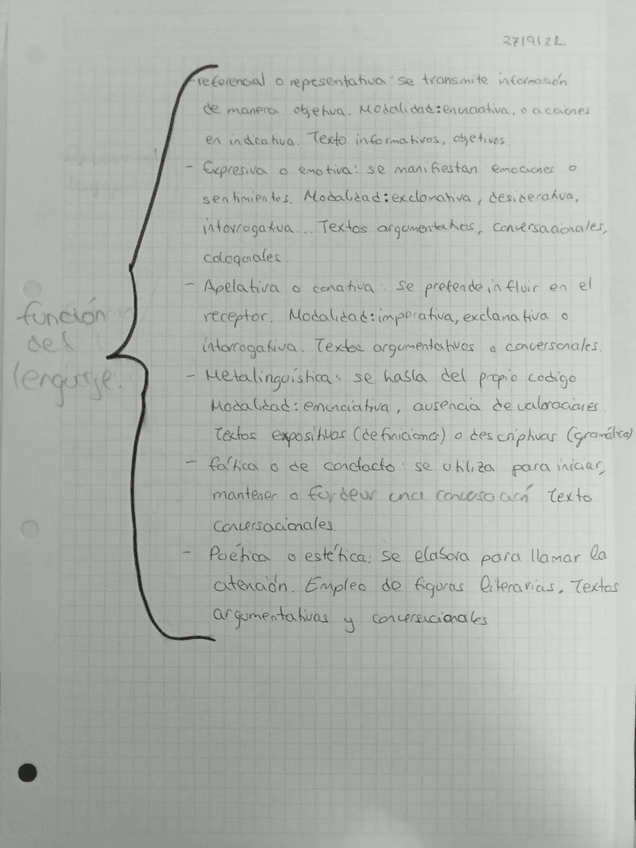 27/9/22
función
del
lenguaje.
-referencial o representativa: se transmite información
de manera objetiva. Modalidad: enunciativa, oraciones
en indicativa. Texto informativos, objetivos.
- Expresiva o emotiva: se manifiestan emociones o
sentimientos. Modalidad: exclamativa, desiderativa,
interrogativa... Textos argumentativos, conversacionales,
coloquiales.
- Apelativa o conativa: se pretende influir en el
receptor. Modalidad: imperativa, exclamativa o
interrogativa. Textos argumentativos o conversonales.
- Metalinguística: se habla del propio codigo
Modalidad: enunciativa, ausencia de valoraciones.
Textos expositivas (definiciones) o descriptivas (gramática)
- fática o de contacto: se utiliza para iniciar,
mantener o una conversación Texto
conversacionales.
- Poética o estética: se elabora para llamar la
atención. Empleo de figuras literarias. Textos
argumentativas y conversacionales